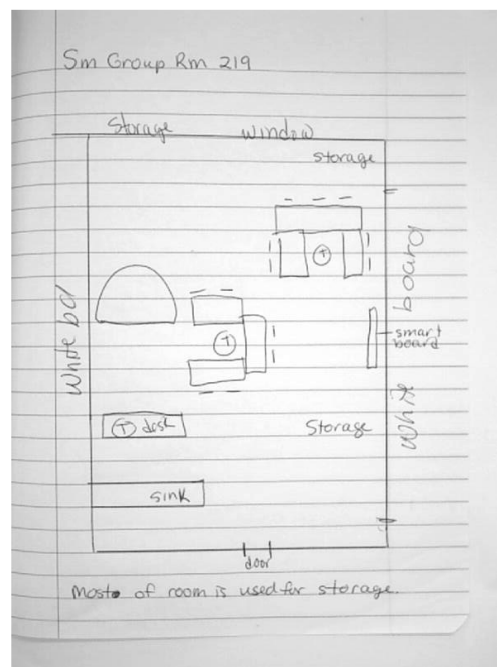 Sm Group Rm 219
Storage window
storage
T
White bd
White board
T
smart
board
T desk
Storage
sink
door
Most of room is used for storage.